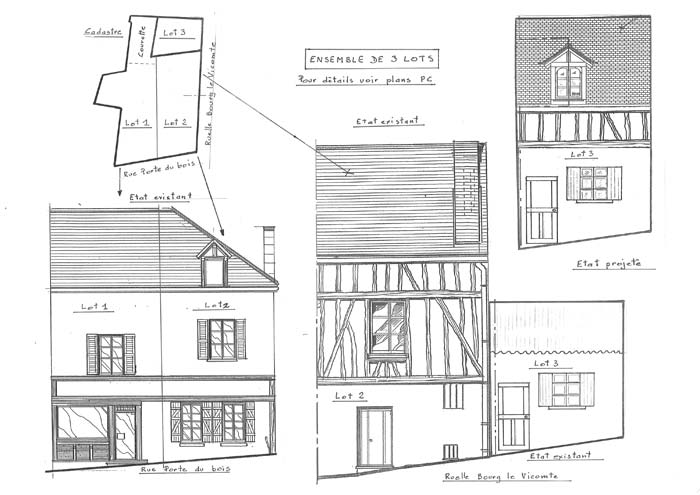 Cadastre
Courette
Lot 3
Lot 1
Lot 2
Ruelle Bourg le Vicomte
Rue Porte du bois
ENSEMBLE DE 3 LOTS
Pour détails voir plans PC
Etat existant
Lot 3
Etat projeté
Etat existant
Lot 1
Lot 2
Rue Porte du bois
Lot 2
Lot 3
Etat existant
Ruelle Bourg le Vicomte